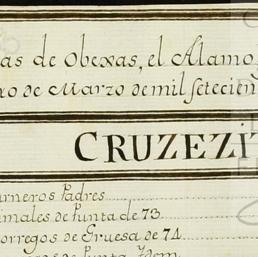 as de Obexas, el Alamo,
xo de Marzo de mil setecien
CRUZEZIT
arneros Padres
imales de Punta de 73
orregos de Gruesa de 74
de Punta Idem